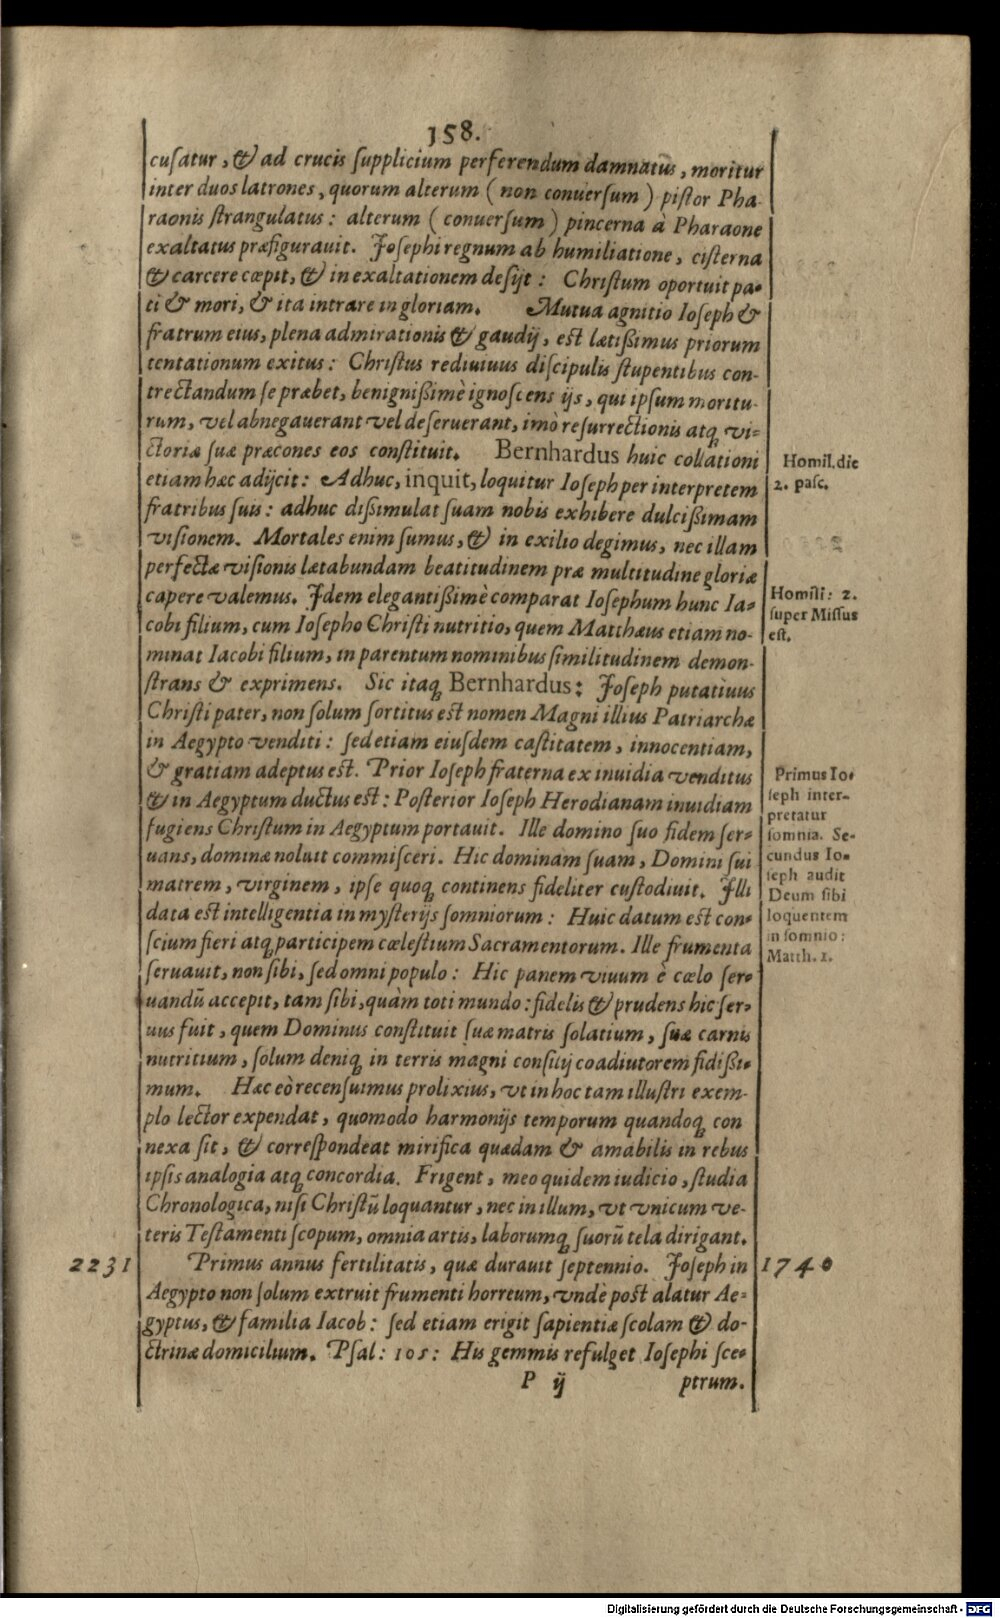 158.
cuſatur, & ad crucis ſupplicium perferendum damnatus, moritur
inter duos latrones, quorum alterum (non conuerſum) piſtor Pha-
raonis ſtrangulatus: alterum (conuerſum) pincerna à Pharaone
exaltatus præfigurauit. Joſephi regnum ab humiliatione, ciſterna
& carcere cœpit, & in exaltationem deſijt: Chriſtum oportuit pa-
ti & mori, & ita intrare in gloriam. Mutua agnitio Ioſeph &
fratrum eius, plena admirationis & gaudij, eſt lætißimus priorum
tentationum exitus: Chriſtus rediuiuus diſcipulis ſtupentibus con-
trectandum ſe præbet, benignißimè ignoſcens ijs, qui ipſum moritu-
rum, vel abnegauerant vel deſeruerant, imò reſurrectionis atq́ vi-
ctoriæ ſuæ præcones eos conſtituit. Bernhardus huic collationi
Homil. die
etiam hæc adijcit: Adhuc, inquit, loquitur Ioſeph per interpretem
2. paſc.
fratribus ſuis: adhuc dißimulat ſuam nobis exhibere dulcißimam
viſionem. Mortales enim ſumus, & in exilio degimus, nec illam
perfectæ viſionis lætabundam beatitudinem præ multitudine gloriæ
capere valemus. Jdem elegantißimè comparat Ioſephum hunc Ia-
Homili: 2.
cobi filium, cum Ioſepho Chriſti nutritio, quem Matthæus etiam no-
ſuper Miſſus
eſt.
minat Iacobi filium, in parentum nominibus ſimilitudinem demon-
ſtrans & exprimens. Sic itaq́ Bernhardus: Joſeph putatiuus
Chriſti pater, non ſolum ſortitus eſt nomen Magni illius Patriarchæ
in Aegypto venditi: ſed etiam eiuſdem caſtitatem, innocentiam,
& gratiam adeptus eſt. Prior Ioſeph fraterna ex inuidia venditus
Primus Io-
& in Aegyptum ductus eſt: Poſterior Ioſeph Herodianam inuidiam
ſeph inter-
pretatur
fugiens Chriſtum in Aegyptum portauit. Ille domino ſuo fidem ſer-
ſomnia. Se-
uans, dominæ noluit commiſceri. Hic dominam ſuam, Domini ſui
cundus Io-
matrem, virginem, ipſe quoq́ continens fideliter cuſtodiuit. Jlli
ſeph audit
Deum ſibi
data eſt intelligentia in myſterijs ſomniorum: Huic datum eſt con-
loquentem
ſcium fieri atq́ participem cæleſtium Sacramentorum. Ille frumenta
in ſomnio:
Matth. 1.
ſeruauit, non ſibi, ſed omni populo: Hic panem viuum è cælo ſer-
uandū accepit, tam ſibi, quàm toti mundo: fidelis & prudens hic ſer-
uus fuit, quem Dominus conſtituit ſuæ matris ſolatium, ſuæ carnis
nutritium, ſolum deniq́ in terris magni conſilij coadiutorem fidißi-
mum. Hæc eò recenſuimus prolixius, vt in hoc tam illuſtri exem-
plo lector expendat, quomodo harmonijs temporum quandoq́ con
nexa ſit, & correſpondeat mirifica quædam & amabilis in rebus
ipſis analogia atq́ concordia. Frigent, meo quidem iudicio, ſtudia
Chronologica, niſi Chriſtū loquantur, nec in illum, vt vnicum ve-
teris Teſtamenti ſcopum, omnia artis, laborumq́ ſuorū tela dirigant.
2231 Primus annus fertilitatis, quæ durauit ſeptennio. Joſeph in 1740
Aegypto non ſolum extruit frumenti horreum, vndè poſt alatur Ae-
gyptus, & familia Iacob: ſed etiam erigit ſapientiæ ſcolam & do-
ctrinæ domicilium. Pſal: 105: His gemmis refulget Ioſephi ſce-
P ij ptrum.
Digitalisierung gefördert durch die Deutsche Forschungsgemeinschaft - DFG